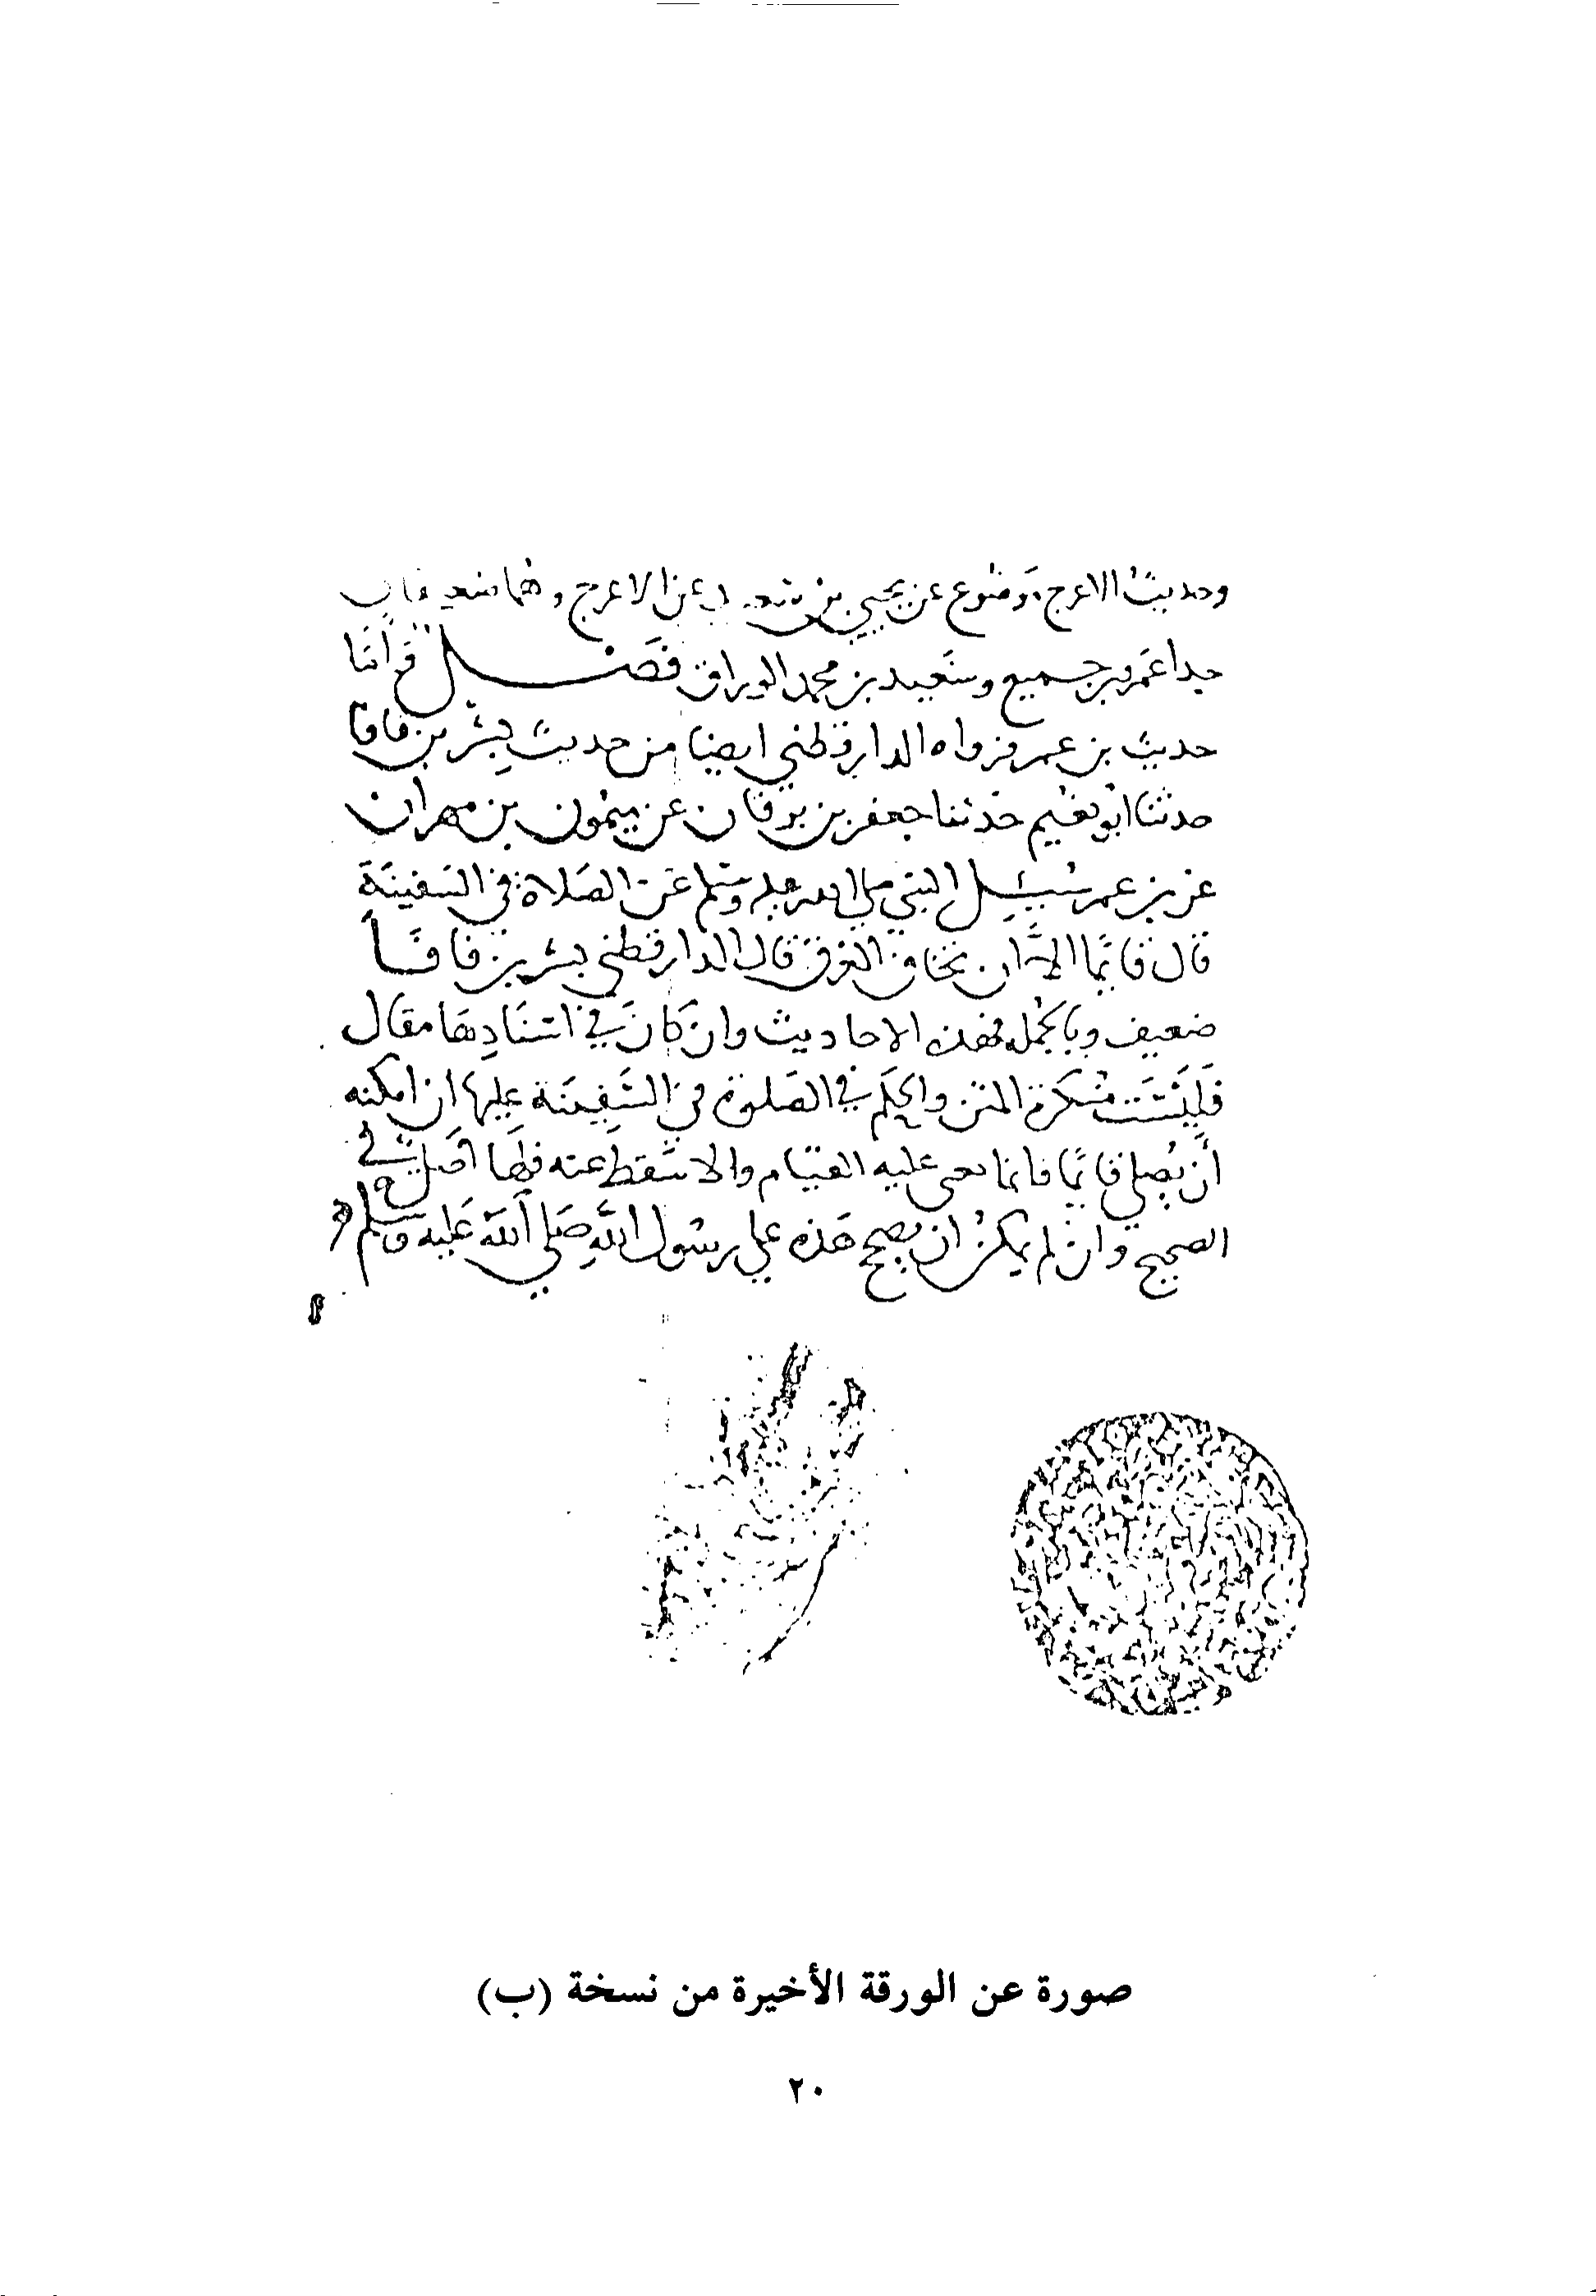 وحديث الاعرج موضوع عن يحيي بن عن الاعرج وهما ضعيفان
جدا عمرو بن جميع وسعيد بن محمد الوراق فصل واما
حديث بن عمر فرواه الدارقطني ايضا من حديث بشر بن فافا
حدثنا ابو نعيم حدثنا جعفر بن برقان عن ميمون بن مهران
عن بن عمر سيل النبي صلي الله عليه وسلم عن الصلاة في السفينة
قال قائما الا ان تخاف الغرق قال الدارقطني بشر بن فافا
ضعيف وبالجمله فهذه الاحاديث وان كان في اسنادها مقال
فليست منكرة المتن والحكم في الصلوة في السفينة عليها ان امكنه
أن يصلي قائما فانما عليه القيام والا سقط عنه فلها اصل في
الصحيح وان لم يكن ان يصح هذه علي رسول الله صلي الله عليه وسلم
صورة عن الورقة الأخيرة من نسخة (ب)
٢٠